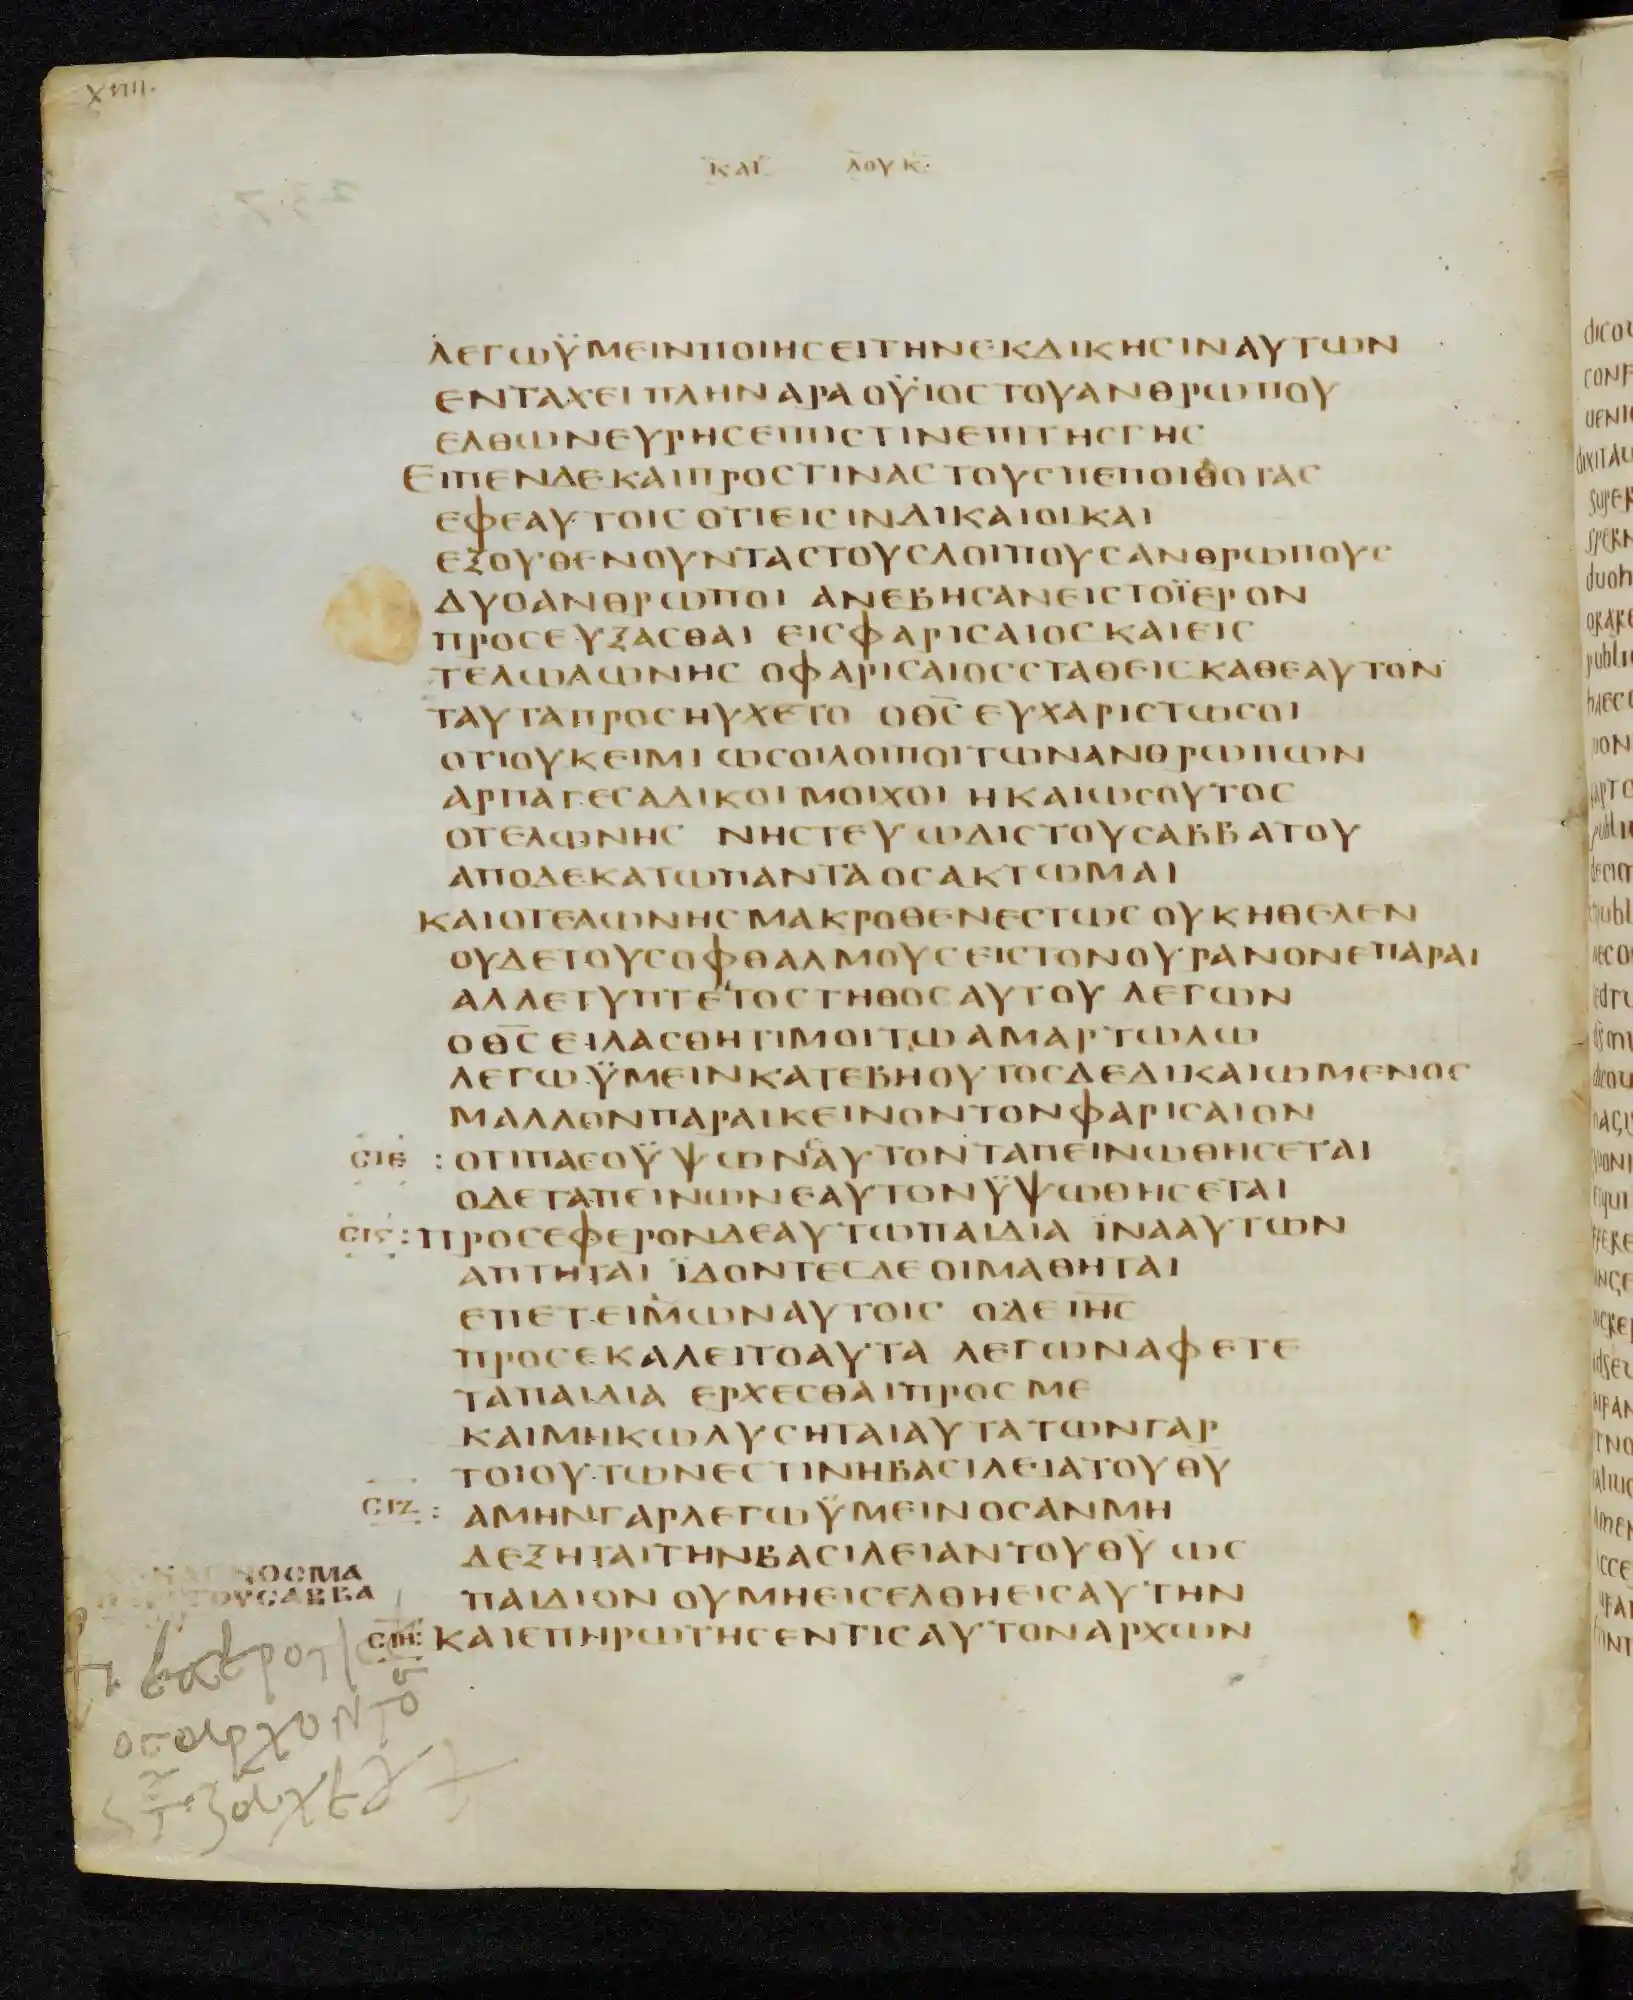 XVIII.
ΚΑΤ ΛΟΥΚ·
ΛΕΓΩΫΜΕΙΝΠΟΙΗΣΕΙΤΗΝΕΚΔΙΚΗΣΙΝΑΥΤΩΝ
ΕΝΤΑΧΕΙ ΠΛΗΝΑΡΑΟΫΙΟΣΤΟΥΑΝΘΡΩΠΟΥ
ΕΛΘΩΝΕΥΡΗΣΕΠΙΣΤΙΝΕΠΙΤΗΣΓΗΣ
ΕΙΠΕΝΔΕΚΑΙΠΡΟΣΤΙΝΑΣΤΟΥΣΠΕΠΟΙΘΟΤΑΣ
ΕΦΕΑΥΤΟΙΣΟΤΙΕΙΣΙΝΔΙΚΑΙΟΙΚΑΙ
ΕΞΟΥΘΕΝΟΥΝΤΑΣΤΟΥΣΛΟΙΠΟΥΣΑΝΘΡΩΠΟΥΣ
ΔΥΟΑΝΘΡΩΠΟΙ ΑΝΕΒΗΣΑΝΕΙΣΤΟΪΕΡΟΝ
ΠΡΟΣΕΥΞΑΣΘΑΙ ΕΙΣΦΑΡΙΣΑΙΟΣΚΑΙΕΙΣ
ΤΕΛΩΛΩΝΗΣ ΟΦΑΡΙΣΑΙΟΣΣΤΑΘΕΙΣΚΑΘΕΑΥΤΟΝ
ΤΑΥΤΑΠΡΟΣΗΥΧΕΤΟ ΟΘ̅Σ̅ΕΥΧΑΡΙΣΤΩΣΟΙ
ΟΤΙΟΥΚΕΙΜΙ ΩΣΟΙΛΟΙΠΟΙΤΩΝΑΝΘΡΩΠΩΝ
ΑΡΠΑΓΕΣΑΔΙΚΟΙΜΟΙΧΟΙ ΗΚΑΙΩΣΟΥΤΟΣ
ΟΤΕΛΩΝΗΣ ΝΗΣΤΕΥΩΔΙΣΤΟΥΣΑΒΒΑΤΟΥ
ΑΠΟΔΕΚΑΤΩΠΑΝΤΑΟΣΑΚΤΩΜΑΙ
ΚΑΙΟΤΕΛΩΝΗΣΜΑΚΡΟΘΕΝΕΣΤΩΣ ΟΥΚΗΘΕΛΕΝ
ΟΥΔΕΤΟΥΣΟΦΘΑΛΜΟΥΣΕΙΣΤΟΝΟΥΡΑΝΟΝΕΠΑΡΑΙ
ΑΛΛΕΤΥΠΤΕΤΟΣΤΗΘΟΣΑΥΤΟΥ ΛΕΓΩΝ
ΟΘ̅Σ̅ΕΙΛΑΣΘΗΤΙΜΟΙΤΩΑΜΑΡΤΩΛΩ
ΛΕΓΩΫΜΕΙΝΚΑΤΕΒΗΟΥΤΟΣΔΕΔΙΚΑΙΩΜΕΝΟΣ
ΜΑΛΛΟΝΠΑΡΑΙΚΕΙΝΟΝΤΟΝΦΑΡΙΣΑΙΟΝ
ΣΙΕ : ΟΤΙΠΑΣΟΫΨΩΝΕΑΥΤΟΝΤΑΠΕΙΝΩΘΗΣΕΤΑΙ
ΟΔΕΤΑΠΕΙΝΩΝΕΑΥΤΟΝΫΨΩΘΗΣΕΤΑΙ
ΣΙϚ : ΠΡΟΣΕΦΕΡΟΝΔΕΑΥΤΩΠΑΙΔΙΑ ΪΝΑΑΥΤΩΝ
ΑΠΤΗΤΑΙ ΪΔΟΝΤΕΣΔΕΟΙΜΑΘΗΤΑΙ
ΕΠΕΤΕΙΜΩΝΑΥΤΟΙΣ ΟΔΕΙΗ̅Σ̅
ΠΡΟΣΕΚΑΛΕΙΤΟΑΥΤΑ ΛΕΓΩΝΑΦΕΤΕ
ΤΑΠΑΙΔΙΑ ΕΡΧΕΣΘΑΙΠΡΟΣΜΕ
ΚΑΙΜΗΚΩΛΥΣΗΤΑΙΑΥΤΑΤΩΝΓΑΡ
ΤΟΙΟΥΤΩΝΕΣΤΙΝΗΒΑΣΙΛΕΙΑΤΟΥΘ̅Υ̅
ΣΙΖ : ΑΜΗΝΓΑΡΛΕΓΩΫΜΕΙΝΟΣΑΝΜΗ
ΔΕΞΗΤΑΙΤΗΝΒΑΣΙΛΕΙΑΝΤΟΥΘ̅Υ̅ ΩΣ
ΠΑΙΔΙΟΝ ΟΥΜΗΕΙΣΕΛΘΗΕΙΣΑΥΤΗΝ
ΣΙΗ: ΚΑΙΕΠΗΡΩΤΗΣΕΝΤΙΣΑΥΤΟΝΑΡΧΩΝ